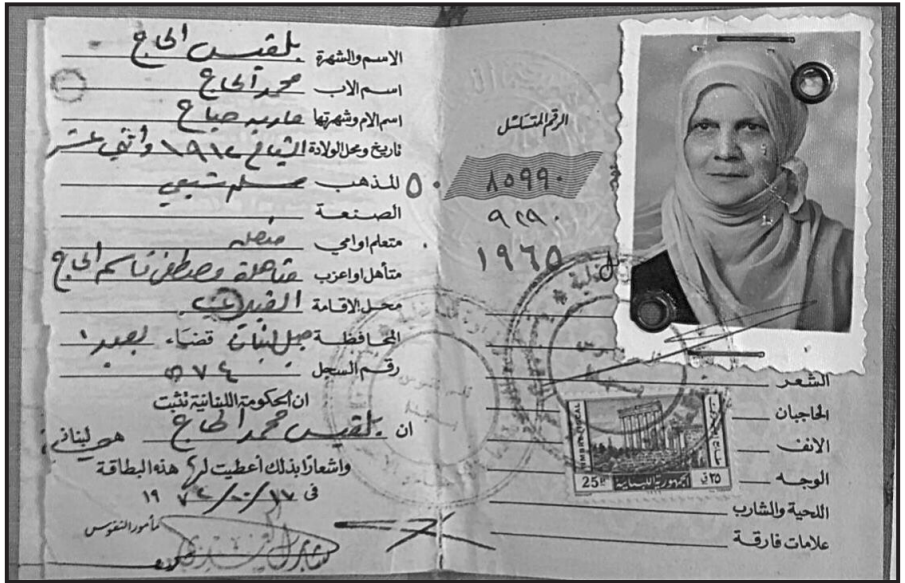 الاسم والشهرة بلقيس الحاج
اسم الاب محمد الحاج
اسم الام وشهرتها صباح
تاريخ ومحل الولادة الشياح ١٩١٢
المذهب مسلم شيعي
الصنعة
متعلم او امي متعلمة
متأهل او اعزب متأهلة مصطفى قاسم الحاج
محل الاقامة
المحافظة جبل لبنان قضاء بعبدا
رقم السجل ٥٧٤
ان الحكومة اللبنانية تثبت
ان بلقيس محمد الحاج هي لبنانية
واشعارًا بذلك أعطيت لها هذه البطاقة
في ١٩
مأمور النفوس
الرقم المتسلسل
٨٥٩٩٠
٩٢٩٠
١٩٦٥
الشعر
الحاجبان
الانف
الوجه
اللحية والشارب
علامات فارقة
TIMBRE FISCAL
25P
٢٥ ق
الجمهورية اللبنانية